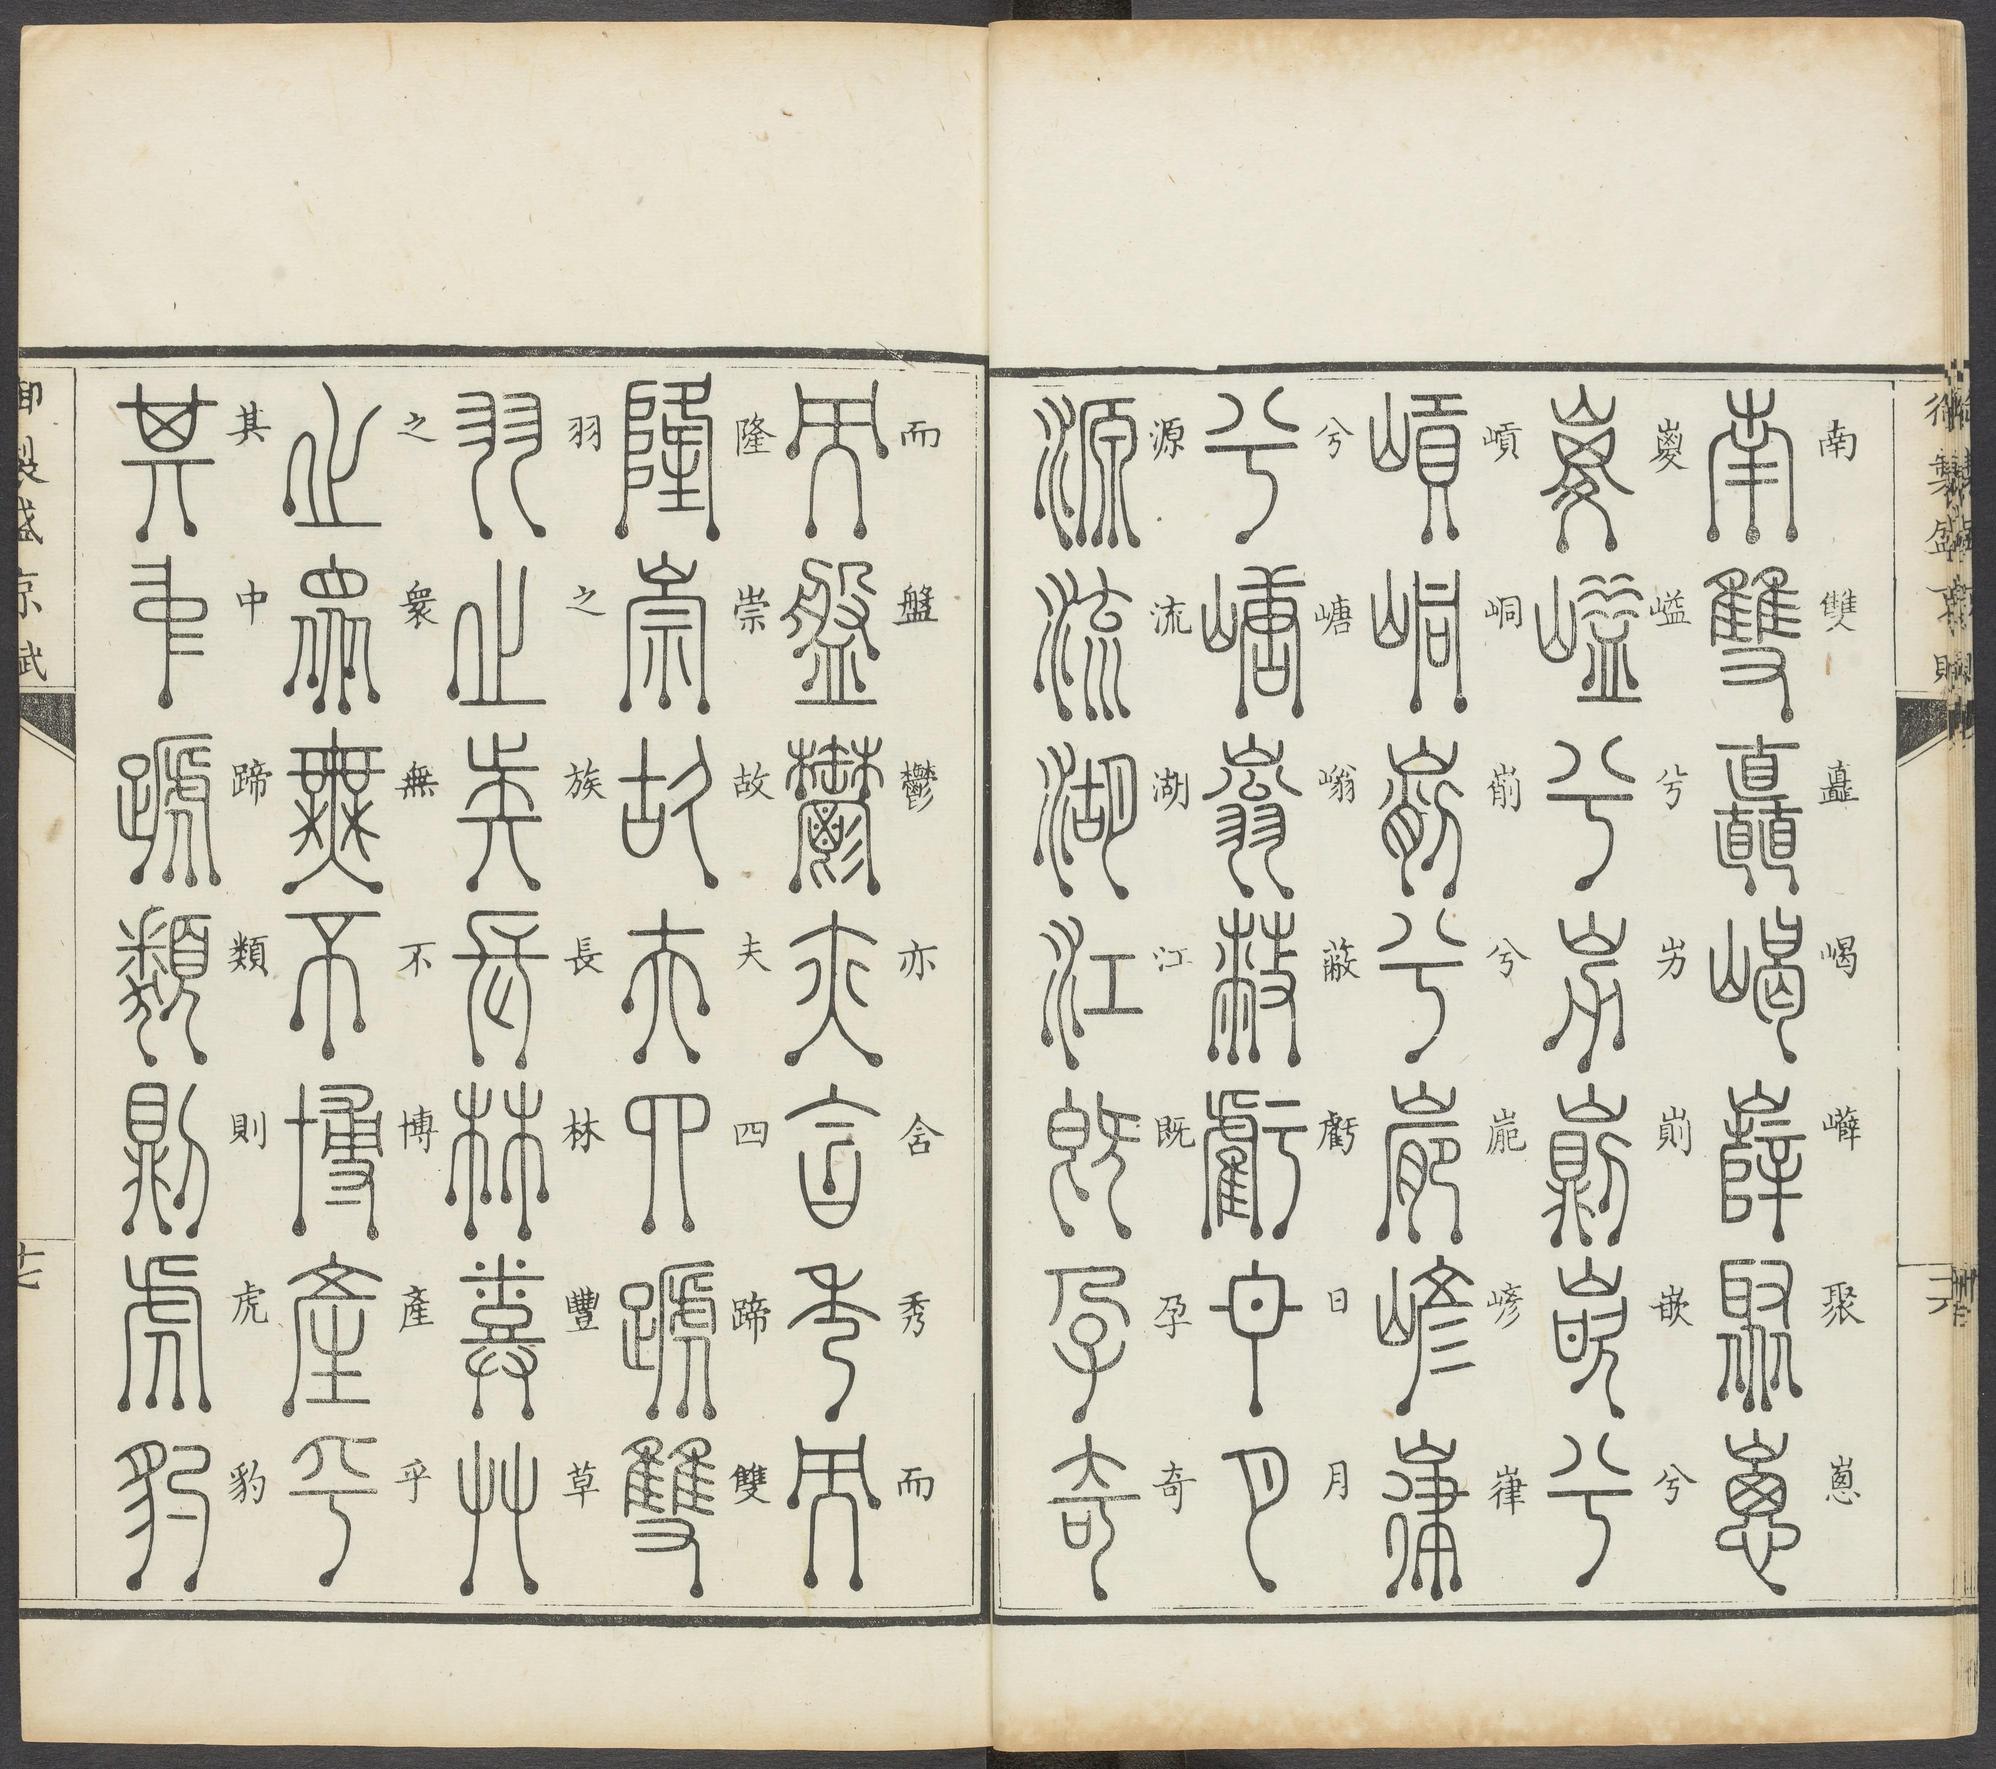 御製盛京賦
南雙矗嵑嶭聚
嵏兮屴崱嵌兮
峒兮嵂
兮嵣嵡蔽虧日月
源流湖江既孕奇
而盤鬱亦含秀而
隆崇故夫四蹄雙
羽之族長林豐草
之衆無不博產乎
其中蹄類則虎豹
御製盛京賦
十七